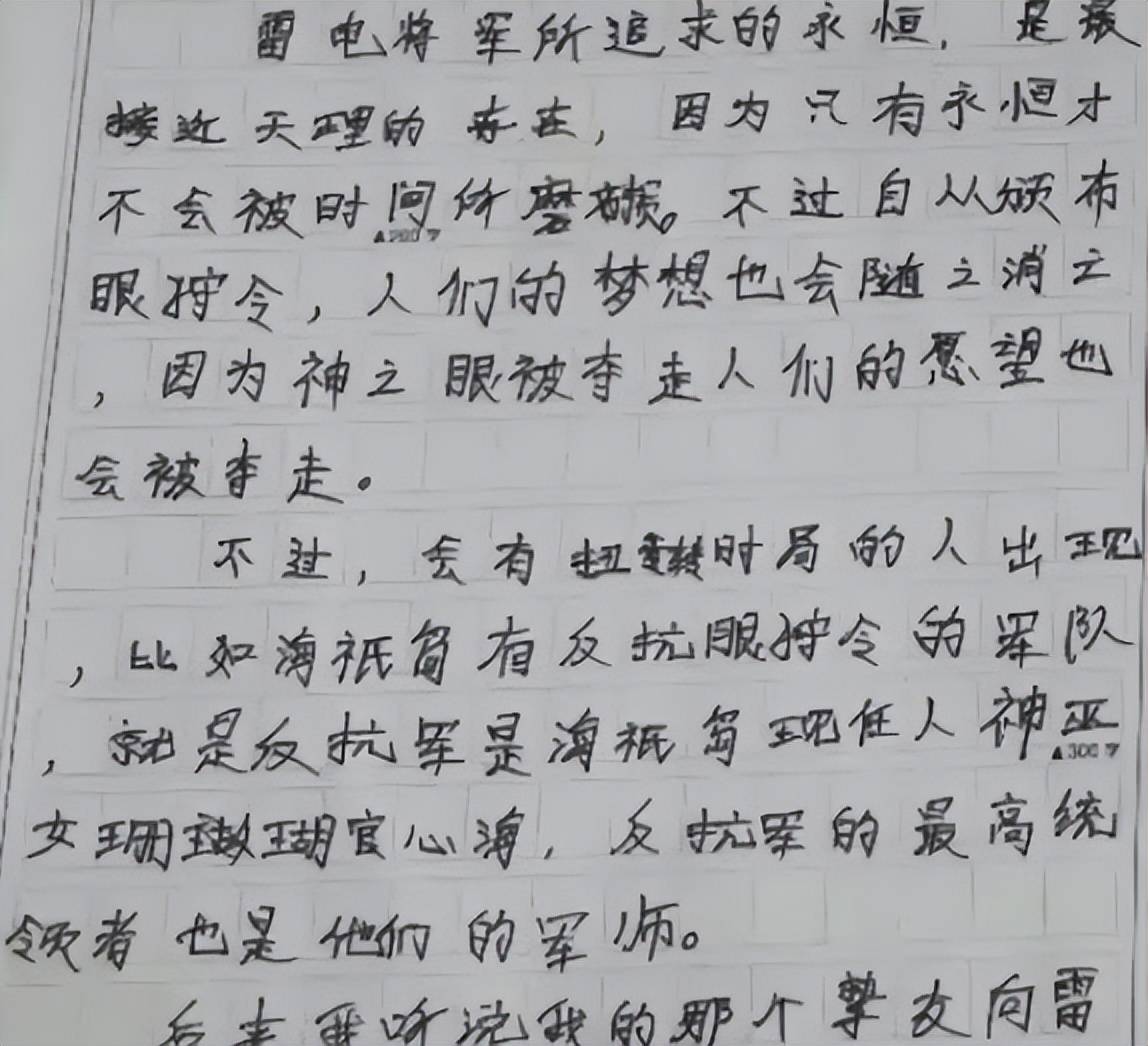 雷电将军所追求的永恒,是最
接近天理的存在,因为只有永恒才
不会被时间所磨损。不过自从颁布
▲200字
眼狩令,人们的梦想也会随之消亡
,因为神之眼被夺走人们的愿望也
会被夺走。
不过,会有扭转时局的人出现
,比如海祇岛有反抗眼狩令的军队
,就是反抗军是海祇岛现任人神巫
▲300字
女珊瑚宫心海,反抗军的最高统
领者也是他们的军师。
后来我听说我的那个挚友向雷